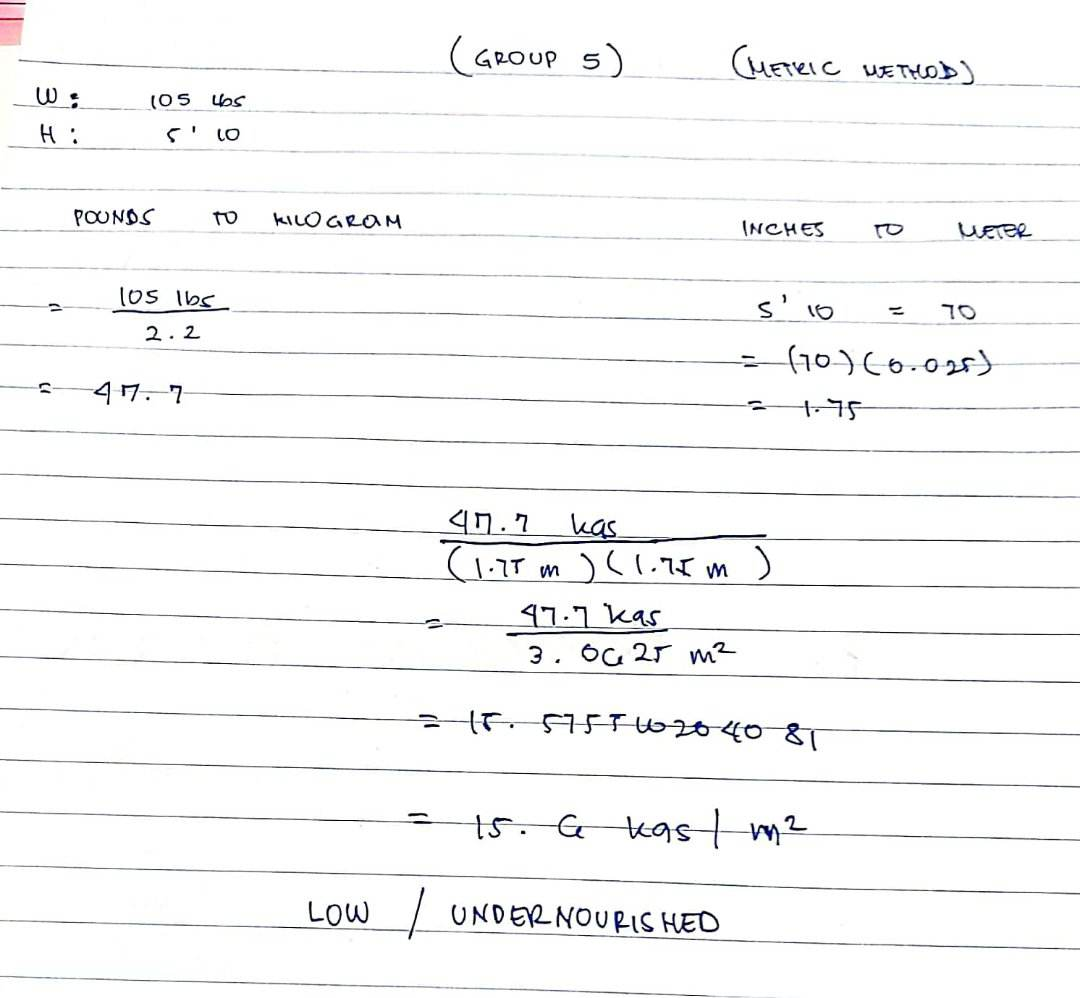 (GROUP 5) (METRIC METHOD)
W: 105 lbs
H: 5' 10
POUNDS TO KILOGRAM
INCHES TO METER
= 105 lbs
2.2
= 47.7
5' 10 = 70
= (70)(0.025)
= 1.75
47.7 kgs
(1.75 m)(1.75 m)
= 47.7 kgs
3.0625 m²
= 15.575510204081
= 15.6 kgs / m²
LOW / UNDERNOURISHED